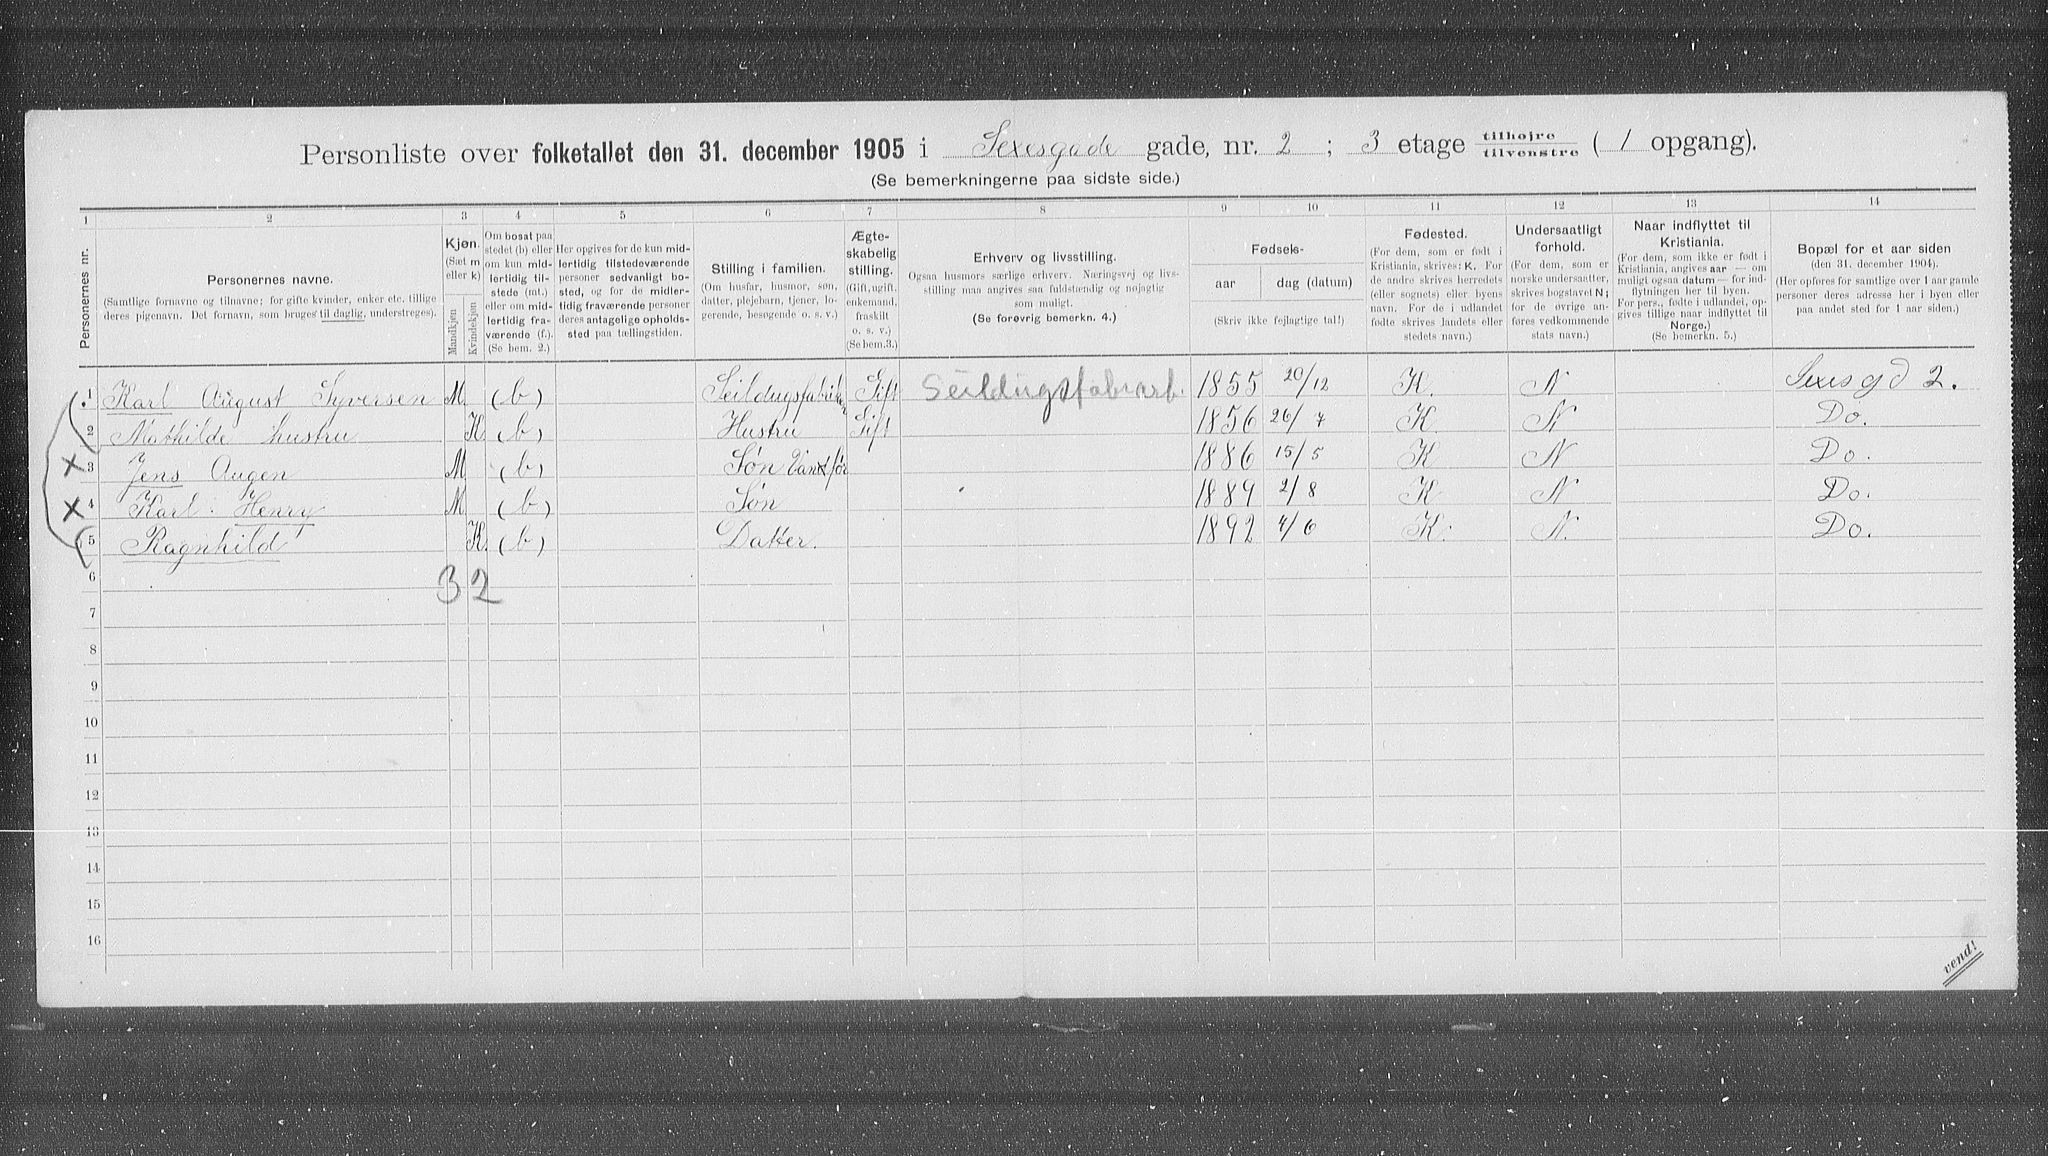 Personliste over folketallet den 31. december 1905 i Sexesgade gade, nr. 2 ; 3 etage tilhøjre tilvenstre ( 1 opgang).
(Se bemerkningerne paa sidste side.)
1 2 3 4 5 6 7 8 9 10 11 12 13 14
Personernes nr.
Personernes navne.
(Samtlige fornavne og tilnavne; for gifte kvinder, enker etc. tillige deres pigenavn. Det fornavn, som bruges til daglig, understreges).
Kjøn.
(Sæt m eller k)
Mandkjøn
Kvindekjøn
Om bosat paa stedet (b) eller om kun midlertidig tilstede (mt.) eller om midlertidig fraværende (f.).
(Se bem. 2.)
Her opgives for de kun midlertidig tilstedeværende personer sedvanligt bosted, og for de midlertidig fraværende personer deres antagelige opholdssted paa tællingstiden.
Stilling i familien.
(Om husfar, husmor, søn, datter, plejebarn, tjener, logerende, besøgende o. s. v.)
Ægteskabelig stilling.
(Gift, ugift, enkemand, fraskilt o. s. v.)
(Se bem. 3.)
Erhverv og livsstilling.
Ogsaa husmors særlige erhverv. Næringsvej og livsstilling maa angives saa fuldstændig og nøjagtig som muligt.
(Se forøvrig bemerkn. 4.)
Fødsels-
aar
dag (datum)
(Skriv ikke fejlagtige tal!)
Fødested.
(For dem, som er født i Kristiania, skrives: K. For de andre skrives herredets (eller sognets) eller byens navn. For de i udlandet fødte skrives landets eller stedets navn.)
Undersaatligt forhold.
(For dem, som er norske undersaatter, skrives bogstavet N; for de øvrige anføres vedkommende stats navn.)
Naar indflyttet til Kristiania.
(For dem, som ikke er født i Kristiania, angives aar — om muligt ogsaa datum — for indflytningen her til byen. For pers., fødte i udlandet, opgives tillige naar indflyttet til Norge.)
(Se bemerkn. 5.)
Bopæl for et aar siden
(den 31. december 1904).
(Her opføres for samtlige over 1 aar gamle personer deres adresse her i byen eller paa andet sted for 1 aar siden.)
1 Karl August Syversen M. (b) Gift Seildugsfabrarb. 1855 20/12 K. N Sexesgd 2.
2 Mathilde hustru K. (b) Hustru Gift 1856 26/7 K N Do.
x 3 Jens Augen M (b) Søn 1886 15/5 K N Do.
x 4 Karl Henry M (b) Søn 1889 2/8 K N Do.
5 Ragnhild K. (b) Datter. 1892 4/6 K. N. Do.
6 3 2
7
8
9
10
11
12
13
14
15
16
vend!